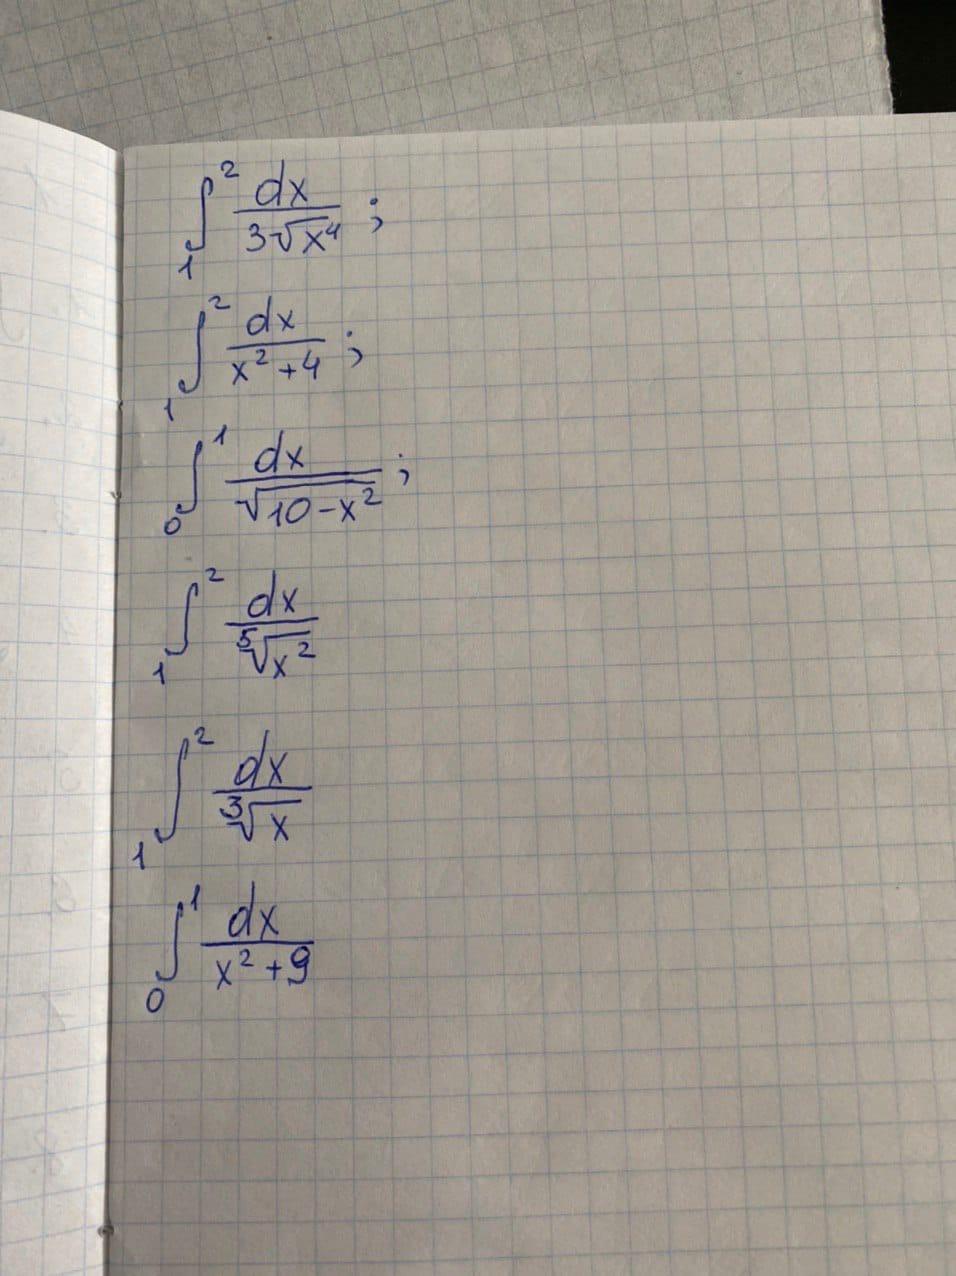 ∫₁² dx / 3√x⁴ ;
∫₁² dx / x² + 4 ;
∫₀¹ dx / √(10 - x²) ;
∫₁² dx / ⁵√x²
∫₁² dx / ³√x
∫₀¹ dx / x² + 9